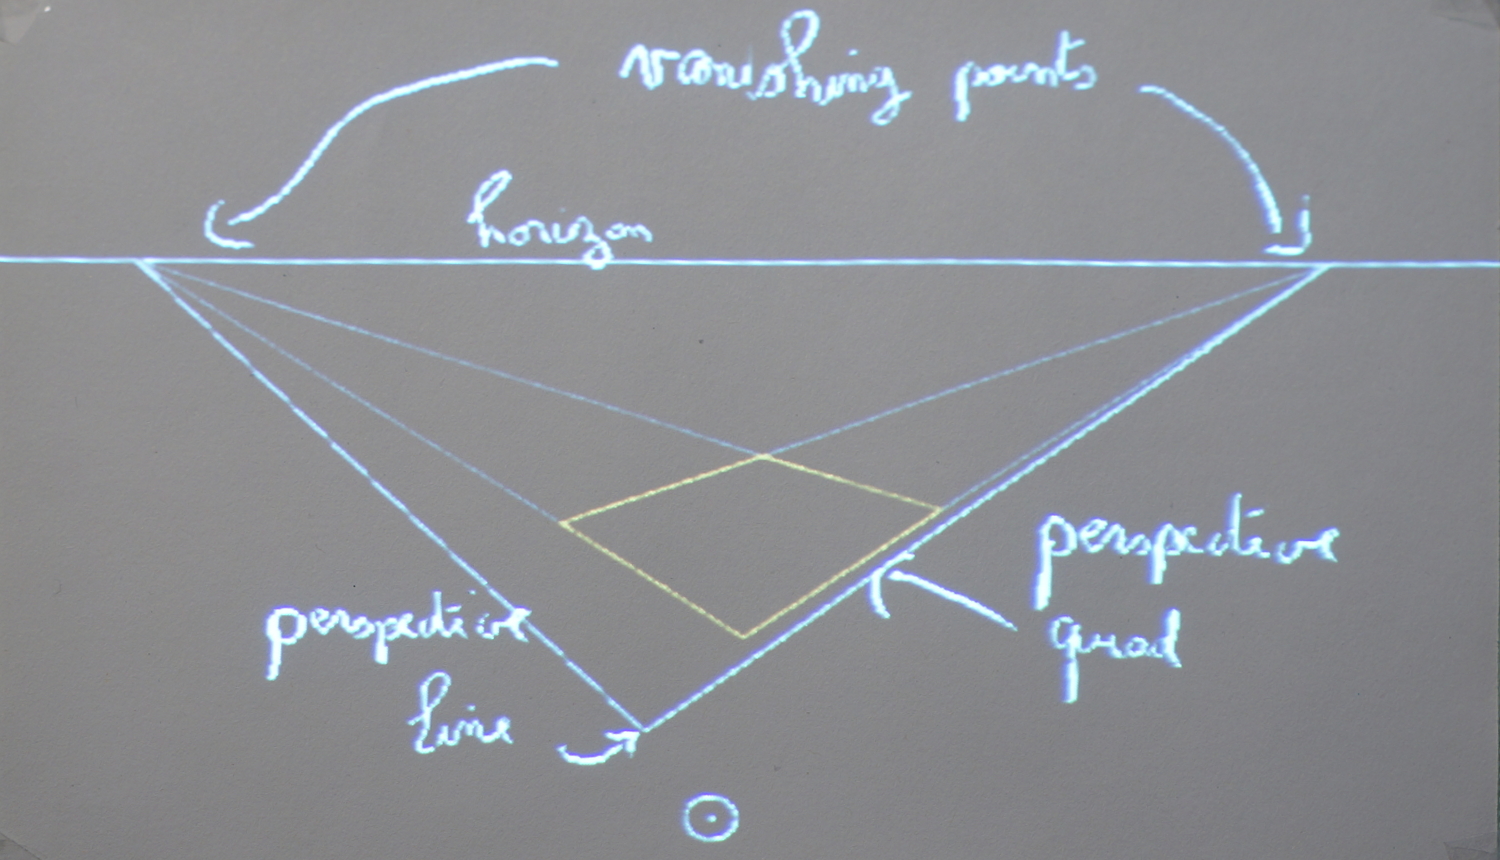 vanishing points
horizon
perspective
line
perspective
quad